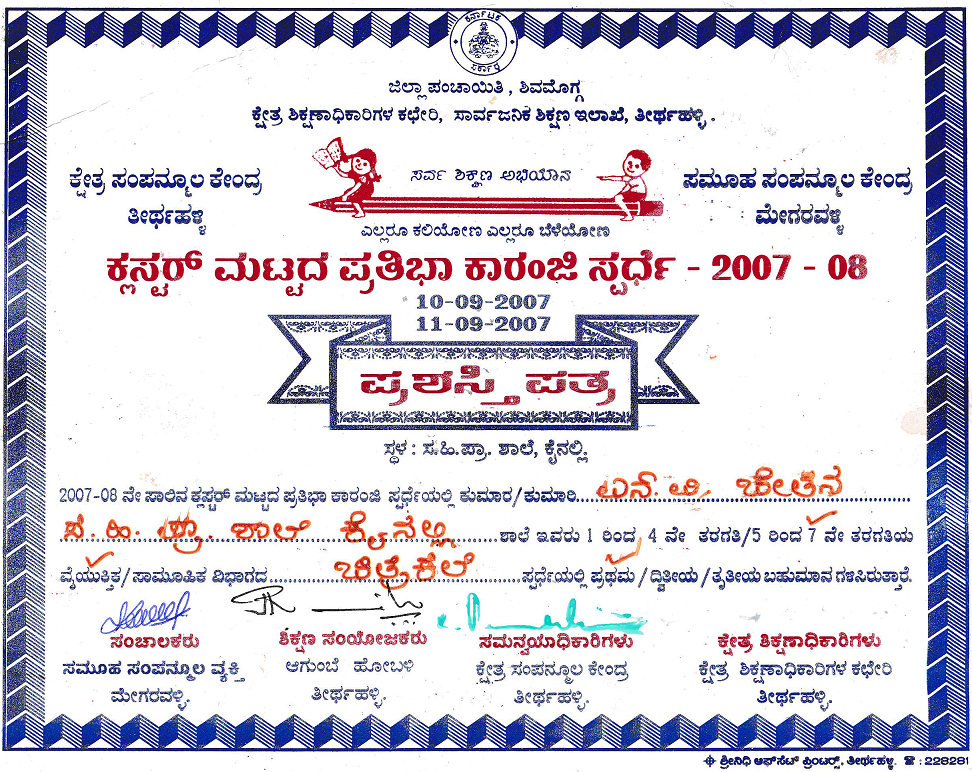 ಕರ್ನಾಟಕ ಸರ್ಕಾರ
ಜಿಲ್ಲಾ ಪಂಚಾಯಿತಿ, ಶಿವಮೊಗ್ಗ
ಕ್ಷೇತ್ರ ಶಿಕ್ಷಣಾಧಿಕಾರಿಗಳ ಕಛೇರಿ, ಸಾರ್ವಜನಿಕ ಶಿಕ್ಷಣ ಇಲಾಖೆ, ತೀರ್ಥಹಳ್ಳಿ.
ಕ್ಷೇತ್ರ ಸಂಪನ್ಮೂಲ ಕೇಂದ್ರ
ತೀರ್ಥಹಳ್ಳಿ
ಸರ್ವ ಶಿಕ್ಷಣ ಅಭಿಯಾನ
ಎಲ್ಲರೂ ಕಲಿಯೋಣ ಎಲ್ಲರೂ ಬೆಳೆಯೋಣ
ಸಮೂಹ ಸಂಪನ್ಮೂಲ ಕೇಂದ್ರ
ಮೇಗರವಳ್ಳಿ
ಕ್ಲಸ್ಟರ್ ಮಟ್ಟದ ಪ್ರತಿಭಾ ಕಾರಂಜಿ ಸ್ಪರ್ಧೆ - 2007 - 08
10-09-2007
11-09-2007
ಪ್ರಶಸ್ತಿ ಪತ್ರ
ಸ್ಥಳ : ಸ.ಹಿ.ಪ್ರಾ. ಶಾಲೆ, ಕೈನಲ್ಲಿ.
2007-08 ನೇ ಸಾಲಿನ ಕ್ಲಸ್ಟರ್ ಮಟ್ಟದ ಪ್ರತಿಭಾ ಕಾರಂಜಿ ಸ್ಪರ್ಧೆಯಲ್ಲಿ ಕುಮಾರ/ಕುಮಾರಿ ಎನ್. ಪಿ. ಚೇತನ
ಸ. ಹಿ. ಪ್ರಾ. ಶಾಲೆ ಕೈನಲ್ಲಿ ಶಾಲೆ ಇವರು 1 ರಿಂದ 4 ನೇ ತರಗತಿ/5 ರಿಂದ 7 ನೇ ತರಗತಿಯ
ವೈಯುಕ್ತಿಕ/ಸಾಮೂಹಿಕ ವಿಭಾಗದ ಚಿತ್ರಕಲೆ ಸ್ಪರ್ಧೆಯಲ್ಲಿ ಪ್ರಥಮ/ದ್ವಿತೀಯ/ತೃತೀಯ ಬಹುಮಾನ ಗಳಿಸಿರುತ್ತಾರೆ.
ಸಂಚಾಲಕರು
ಸಮೂಹ ಸಂಪನ್ಮೂಲ ವ್ಯಕ್ತಿ
ಮೇಗರವಳ್ಳಿ.
ಶಿಕ್ಷಣ ಸಂಯೋಜಕರು
ಆಗುಂಬೆ ಹೋಬಳಿ
ತೀರ್ಥಹಳ್ಳಿ.
ಸಮನ್ವಯಾಧಿಕಾರಿಗಳು
ಕ್ಷೇತ್ರ ಸಂಪನ್ಮೂಲ ಕೇಂದ್ರ
ತೀರ್ಥಹಳ್ಳಿ.
ಕ್ಷೇತ್ರ ಶಿಕ್ಷಣಾಧಿಕಾರಿಗಳು
ಕ್ಷೇತ್ರ ಶಿಕ್ಷಣಾಧಿಕಾರಿಗಳ ಕಛೇರಿ
ತೀರ್ಥಹಳ್ಳಿ.
ಶ್ರೀನಿಧಿ ಆಫ್‌ಸೆಟ್ ಪ್ರಿಂಟರ್ಸ್, ತೀರ್ಥಹಳ್ಳಿ. ☎ : 228281